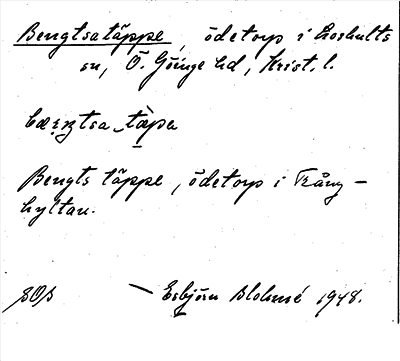 Bengtsatäppe, ödetorp i Loshults
sn, Ö. Göinge hd, Krist. l.
bæŋtsa_täpa
Bengts täppe, ödetorp i Trång-
hyltan.
Esbjörn Blohmé 1948.